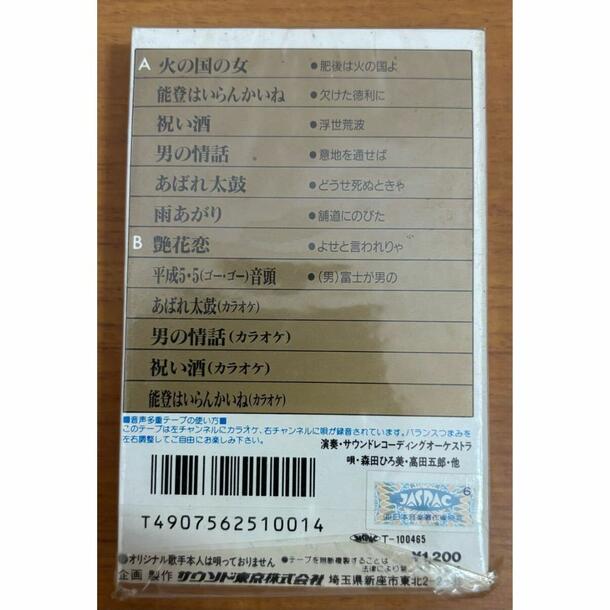 A 火の国の女 ●肥後は火の国よ
能登はいらんかいね ●欠けた徳利に
祝い酒 ●浮世荒波
男の情話 ●意地を通せば
あばれ太鼓 ●どうせ死ぬときゃ
雨あがり ●舗道にのびた
B 艶花恋 ●よせと言われりゃ
平成5・5(ゴー・ゴー)音頭 ●(男)富士が男の
あばれ太鼓(カラオケ)
男の情話(カラオケ)
祝い酒(カラオケ)
能登はいらんかいね(カラオケ)
■音声多重テープの使い方■
このテープは左チャンネルにカラオケ、右チャンネルに唄が録音されています。バランスつまみを
左右調整してご自由にお楽しみ下さい。
演奏・サウンドレコーディングオーケストラ
唄・森田ひろ美・高田五郎・他
6
JASRAC
T4907562510014
T-100465
¥1,200
●オリジナル歌手本人は唄っておりません ●テープを無断複製することは
法律により
企画 製作 サウンド東京株式会社 埼玉県新座市東北2-2